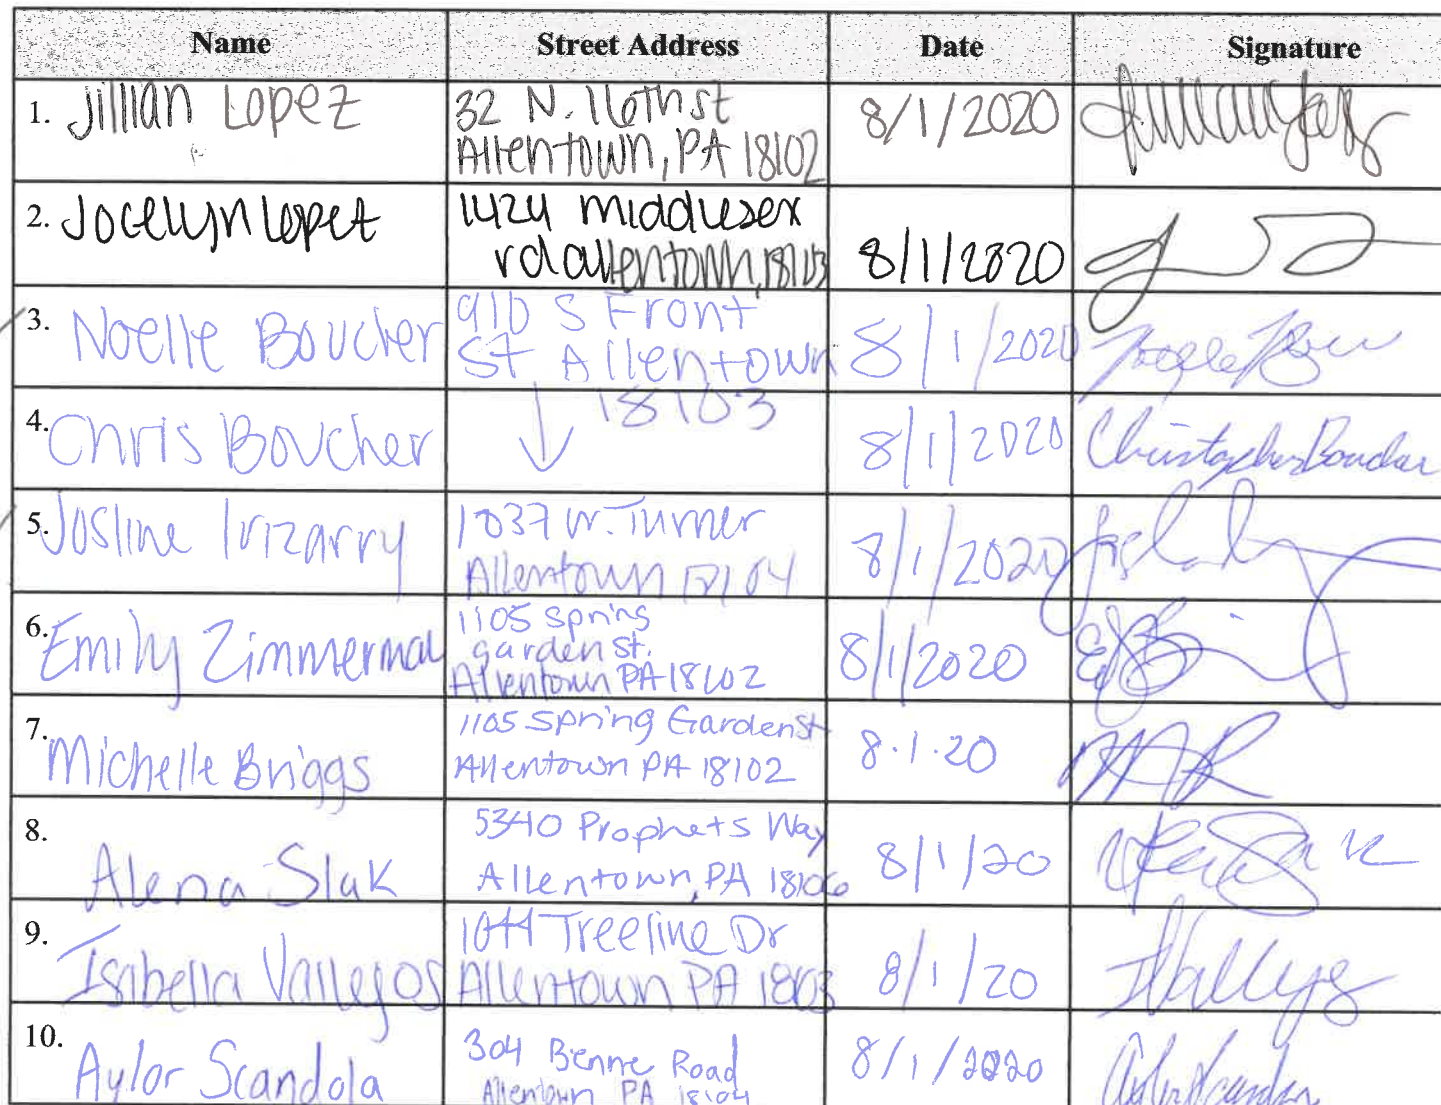 Name Street Address Date Signature
1. Jillian Lopez 32 N. 16th st 8/1/2020
Allentown, PA 18102
2. Jocelyn Lopez 1424 middlesex
rd allentown, 18103 8/1/2020
3. Noelle Boucher 910 S Front
St Allentown 8/1/2020
18103
4. Chris Boucher 8/1/2020 Christopher Boucher
5. Josline Irizarry 1037 W. Turner
Allentown 18104 8/1/2020
6. Emily Zimmerman 1105 spring
garden st.
Allentown PA 18102 8/1/2020
7. Michelle Briggs 1105 Spring Garden St
Allentown PA 18102 8.1.20
8. Alena Slak 5340 Prophets Way
Allentown, PA 18106 8/1/20
9. Isabella Vallejos 1044 Treeline Dr
Allentown PA 18103 8/1/20
10. Aylor Scandola 304 Benne Road 8/1/2020
Allentown PA 18104